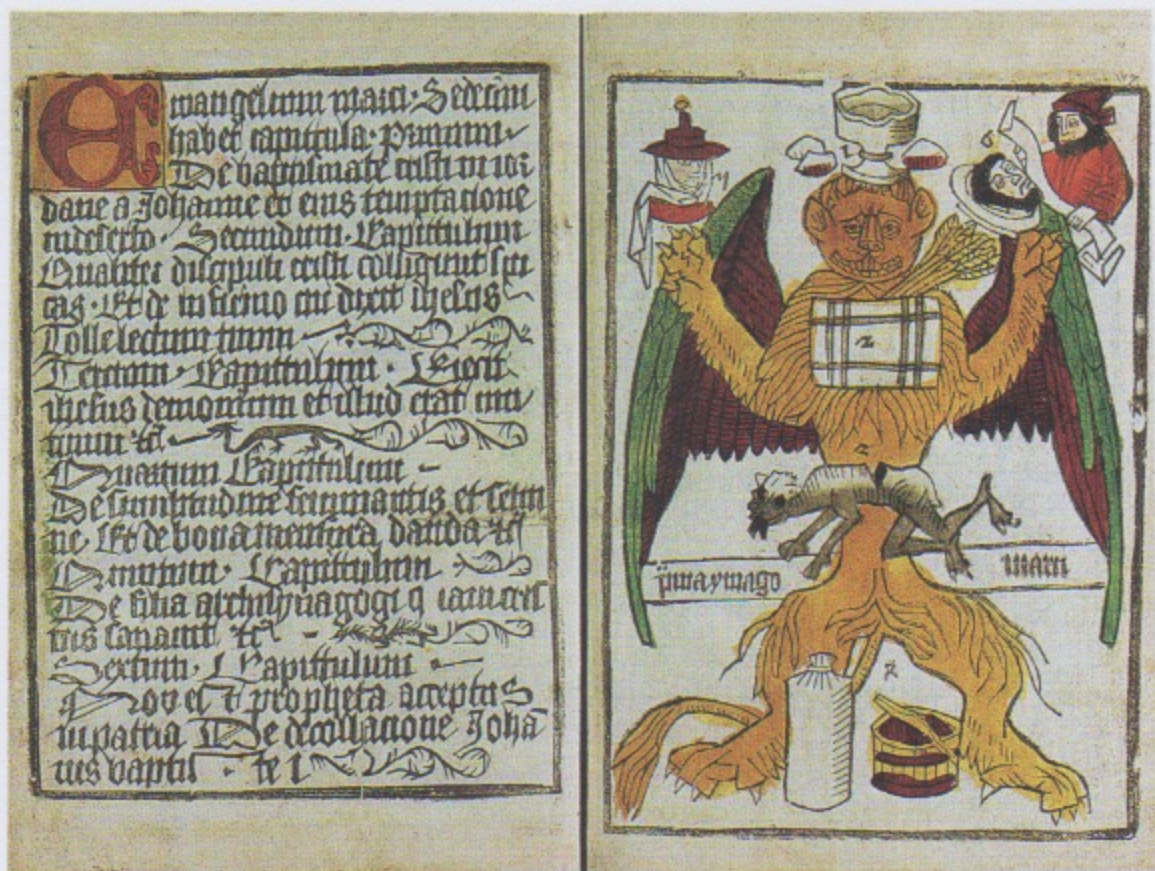 Evangelium marci · Sedecim
habet capitula · Primum ·
De baptismate cristi in ior
dane a Johanne et eius temptacione
in deserto · Secundum · Capittulum
Qualiter discipuli cristi colligunt spi
cas · Et de infirmo cui dixit ihesus
Tolle lectum tuum
Tercium · Capittulum · Eiecit
ihesus demonium et illud erat mu
tum
Quartum Capittulum
De similitudine seminantis et semi
ne · Et de bona mensura danda
Quintum · Capittulum
De filia archisynagogi q
sanavit
Sextum · Capittulum
propheta acceptus
in patria De decollacione Johā
nis baptis
p̄ma ymago marci